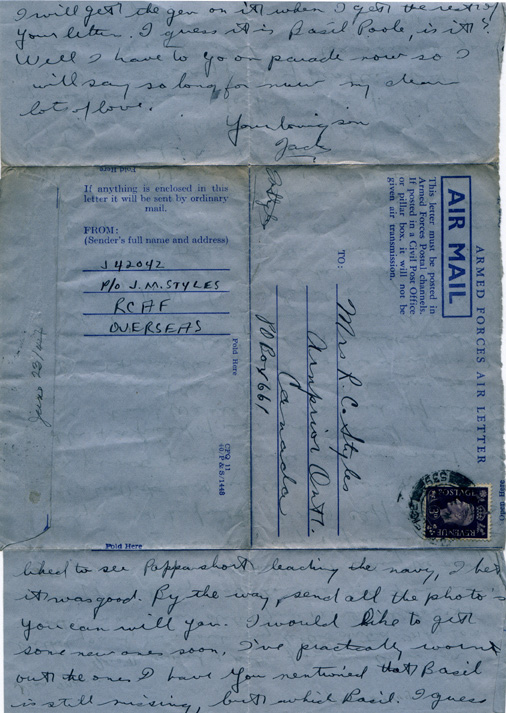 I will get the gen on it when I get the rest of
your letter. I guess it is Basil Poole, is it?
Well I have to go on parade now so I
will say so long for now my dear
lots of love.
Your loving son
Jack
Fold Here
If anything is enclosed in this
letter it will be sent by ordinary
mail.
FROM:
(Sender's full name and address)
J42042
P/O J.M. STYLES
RCAF
OVERSEAS
Fold Here
CPQ 11
60.P&S/1448
June 22/44
Fold Here
ARMED FORCES AIR LETTER
AIR MAIL
This letter must be posted in
Armed Forces Postal channels.
If posted in a Civil Post Office
or pillar box, it will not be
given air transmission.
TO:
Mrs R. C. Styles
Arnprior Ont.
Canada
PO Box 661
POSTAGE
REVENUE
liked to see Poppa short leading the navy, I bet
it was good. By the way, send all the photo's
you can will you. I would like to get
some new ones soon, I've practically worn
out the ones I have You mentioned that Basil
is still missing, but which Basil. I guess